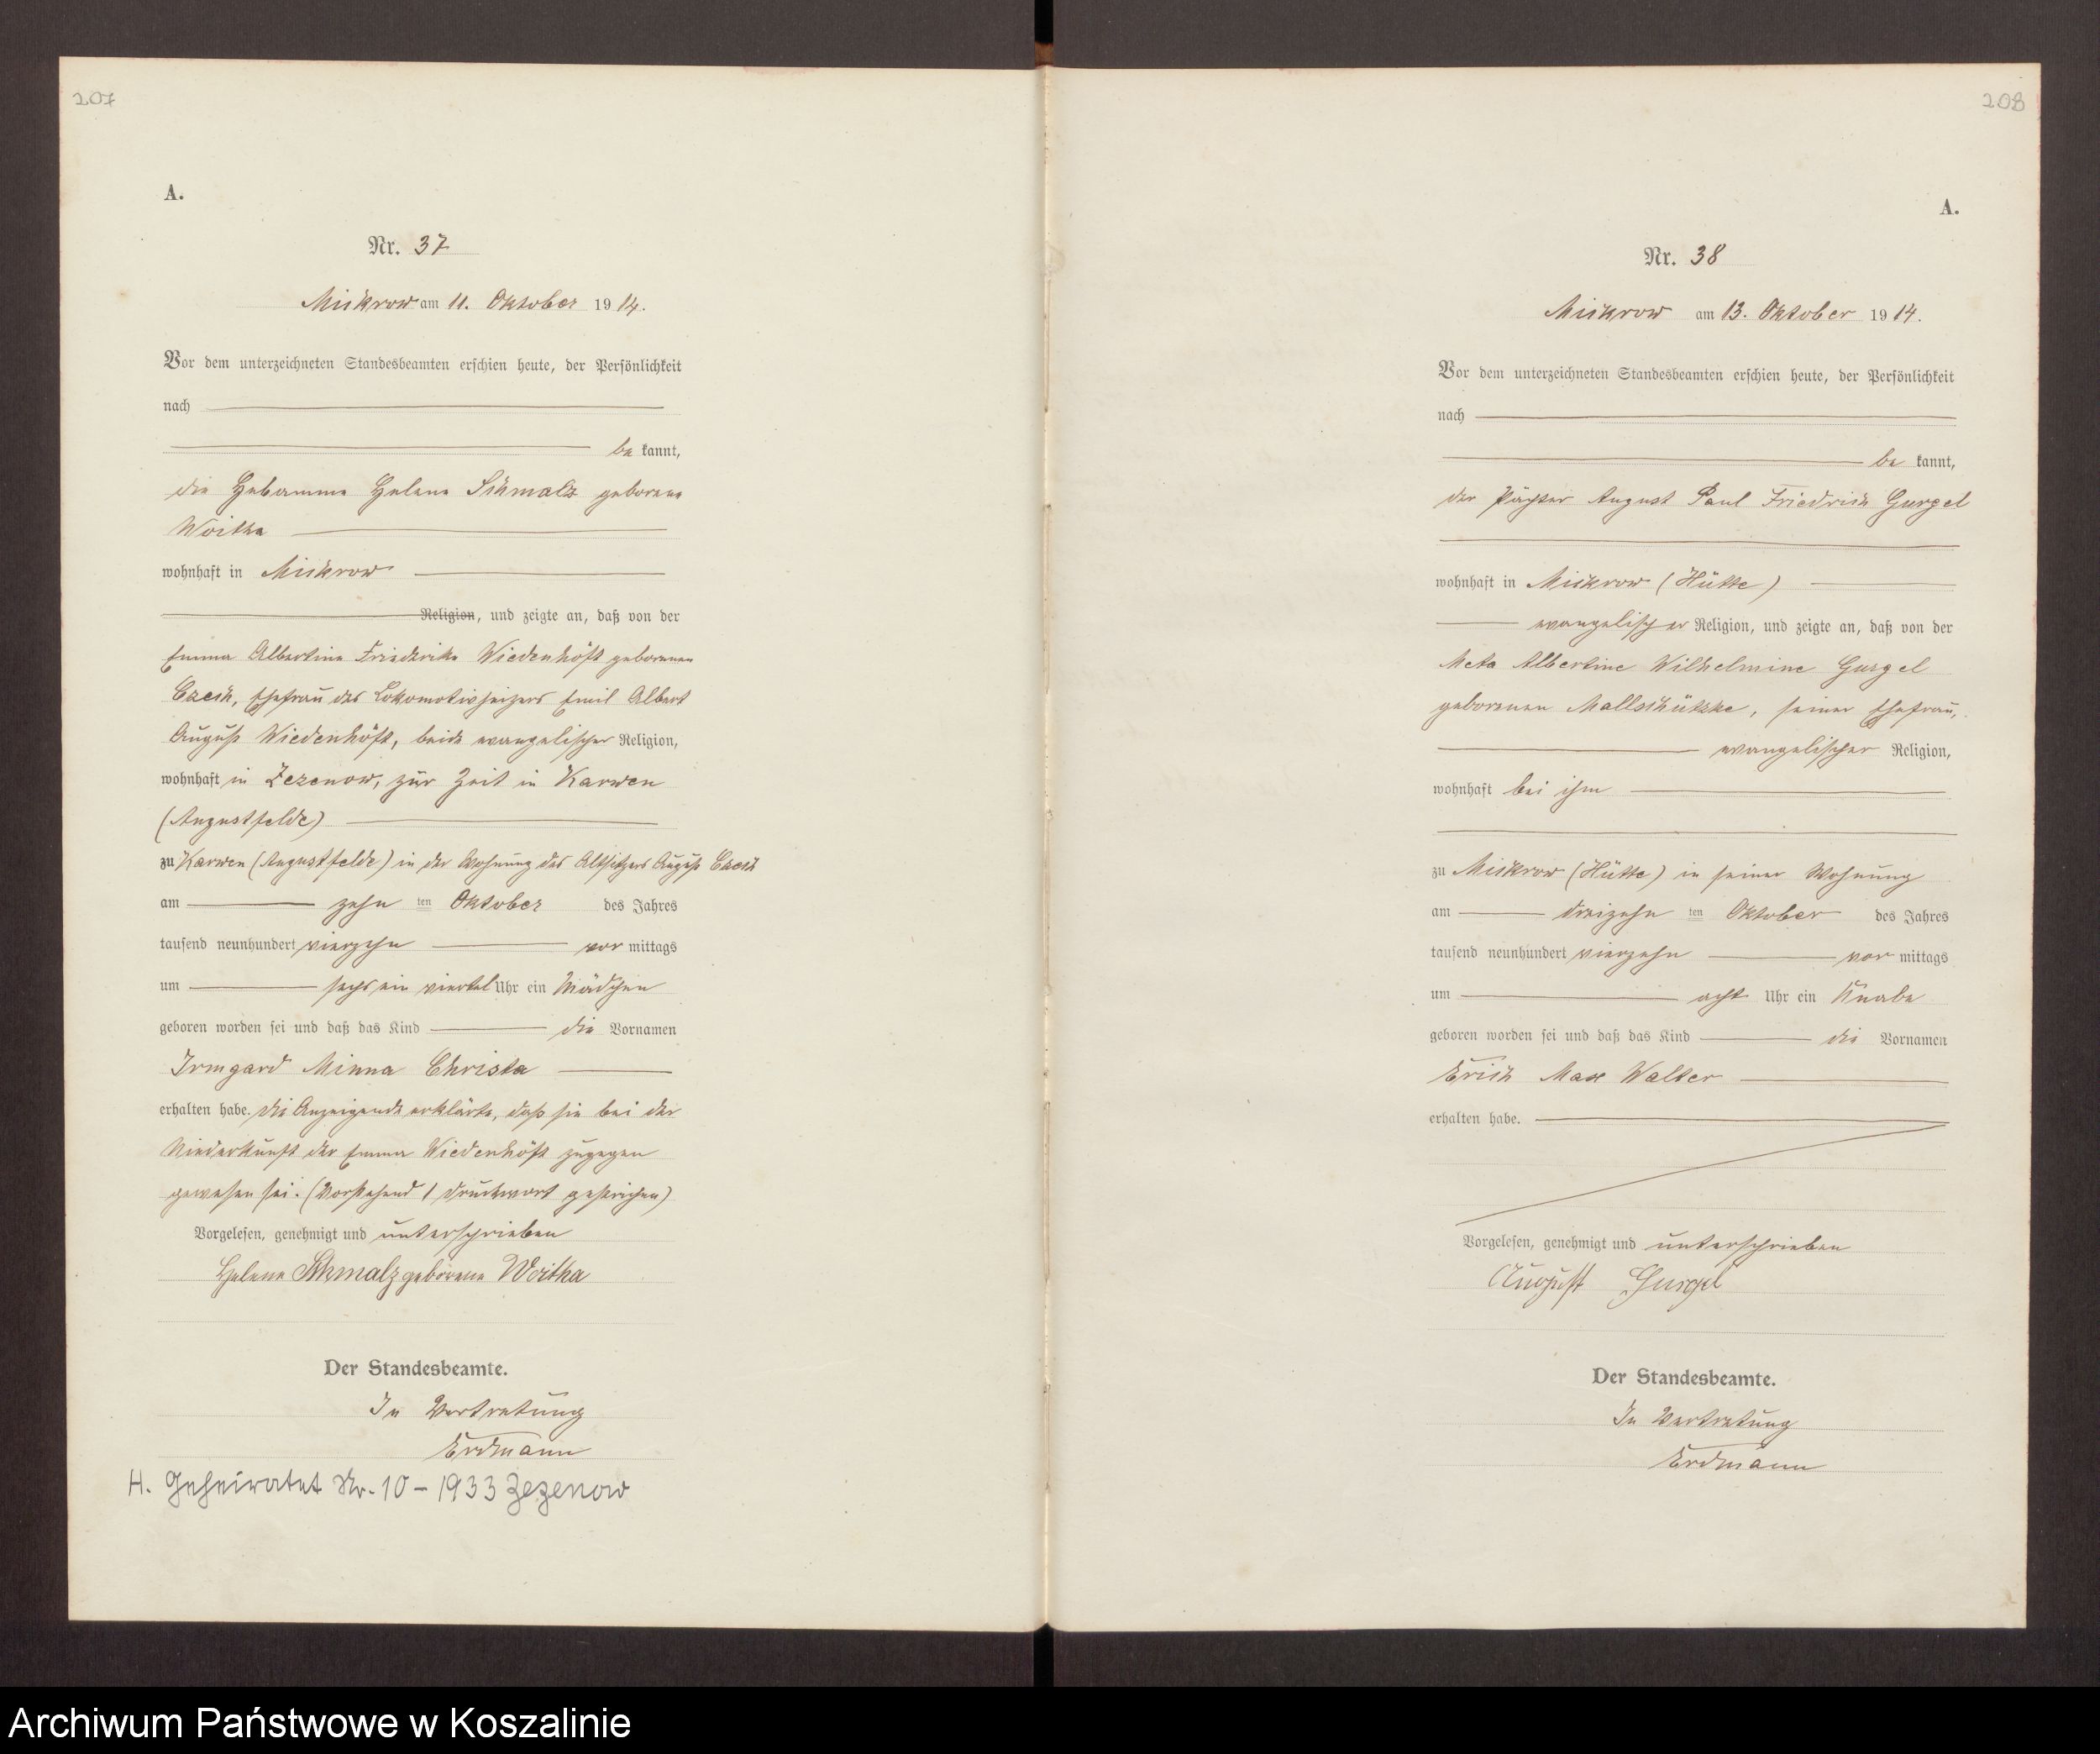 207
A.
Nr. 37
Mickrow am 11. Oktober 1914.
Vor dem unterzeichneten Standesbeamten erschien heute, der Persönlichkeit
nach
be kannt,
die Hebamme Helene Schmalz geborene
Woitka
wohnhaft in Mickrow
Religion, und zeigte an, daß von der
Emma Albertine Friederike Wiedenhöft geborenen
Czech, Ehefrau des Lokomotivheizers Emil Albert
August Wiedenhöft, beide evangelischer Religion,
wohnhaft in Zezenow, zur Zeit in Karwen
(Augustfelde)
zu Karwen (Augustfelde) in der Wohnung des Altsitzers August Czech
am zehn ten Oktober des Jahres
tausend neunhundert vierzehn vor mittags
um sechs ein viertel Uhr ein Mädchen
geboren worden sei und daß das Kind die Vornamen
Irmgard Minna Christa
erhalten habe. Die Anzeigende erklärte, daß sie bei der
Niederkunft der Emma Wiedenhöft zugegen
gewesen sei. (Vorstehend 1 Druckwort gestrichen)
Vorgelesen, genehmigt und unterschrieben
Helene Schmalz geborene Woitka
Der Standesbeamte.
In Vertretung
Erdmann
H. Geheiratet Nr. 10 - 1933 Zezenow
208
A.
Nr. 38
Mickrow am 13. Oktober 1914.
Vor dem unterzeichneten Standesbeamten erschien heute, der Persönlichkeit
nach
be kannt,
der Pächter August Paul Friedrich Gurgel
wohnhaft in Mickrow (Hütte)
evangelischer Religion, und zeigte an, daß von der
Meta Albertine Wilhelmine Gurgel
geborenen Mallschützke, seiner Ehefrau,
evangelischer Religion,
wohnhaft bei ihm
zu Mickrow (Hütte) in seiner Wohnung
am dreizehn ten Oktober des Jahres
tausend neunhundert vierzehn vor mittags
um acht Uhr ein Knabe
geboren worden sei und daß das Kind die Vornamen
Erich Max Walter
erhalten habe.
Vorgelesen, genehmigt und unterschrieben
August Gurgel
Der Standesbeamte.
In Vertretung
Erdmann
Archiwum Państwowe w Koszalinie